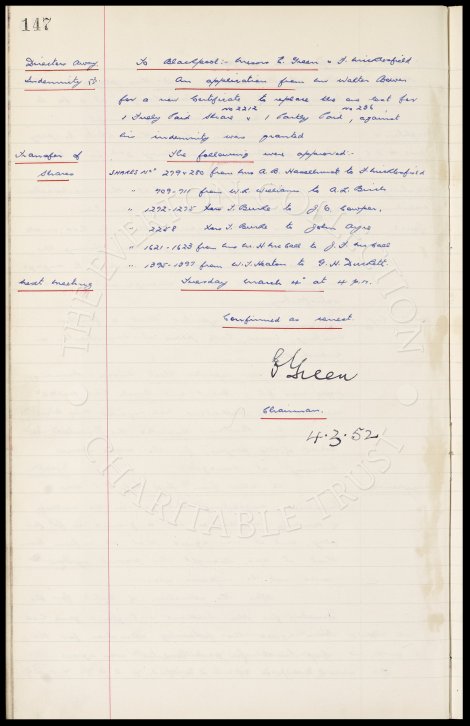 147
Directors Away To Blackpool:- Messrs E. Green & F. Micklesfield
Indemnity An application from Mr Walter Bower
for a new Certificate to replace the one lost for
No 2212 No 286
1 Fully Paid Share & 1 Partly Paid, against
his indemnity was granted
Transfer of The following were approved:-
Shares SHARES Nos 279 & 280 from Mrs A. B. Haselhurst to F Micklesfield
" 709-711 from W. R. Williams to A. L. Birch
" 1272-1275 T. Burke to J. C. Cowper.
" 2258 T. Burke to John Ayre
" 1621-1623 from Mrs W. H McCall to J. F. McCall
" 1395-1397 from W. J. Heaton to G. H. Duckett.
Next meeting Tuesday March 4th at 4 p.m.
Confirmed as correct.
E Green
Chairman.
4.3.52
THE EVERTON COLLECTION
CHARITABLE TRUST